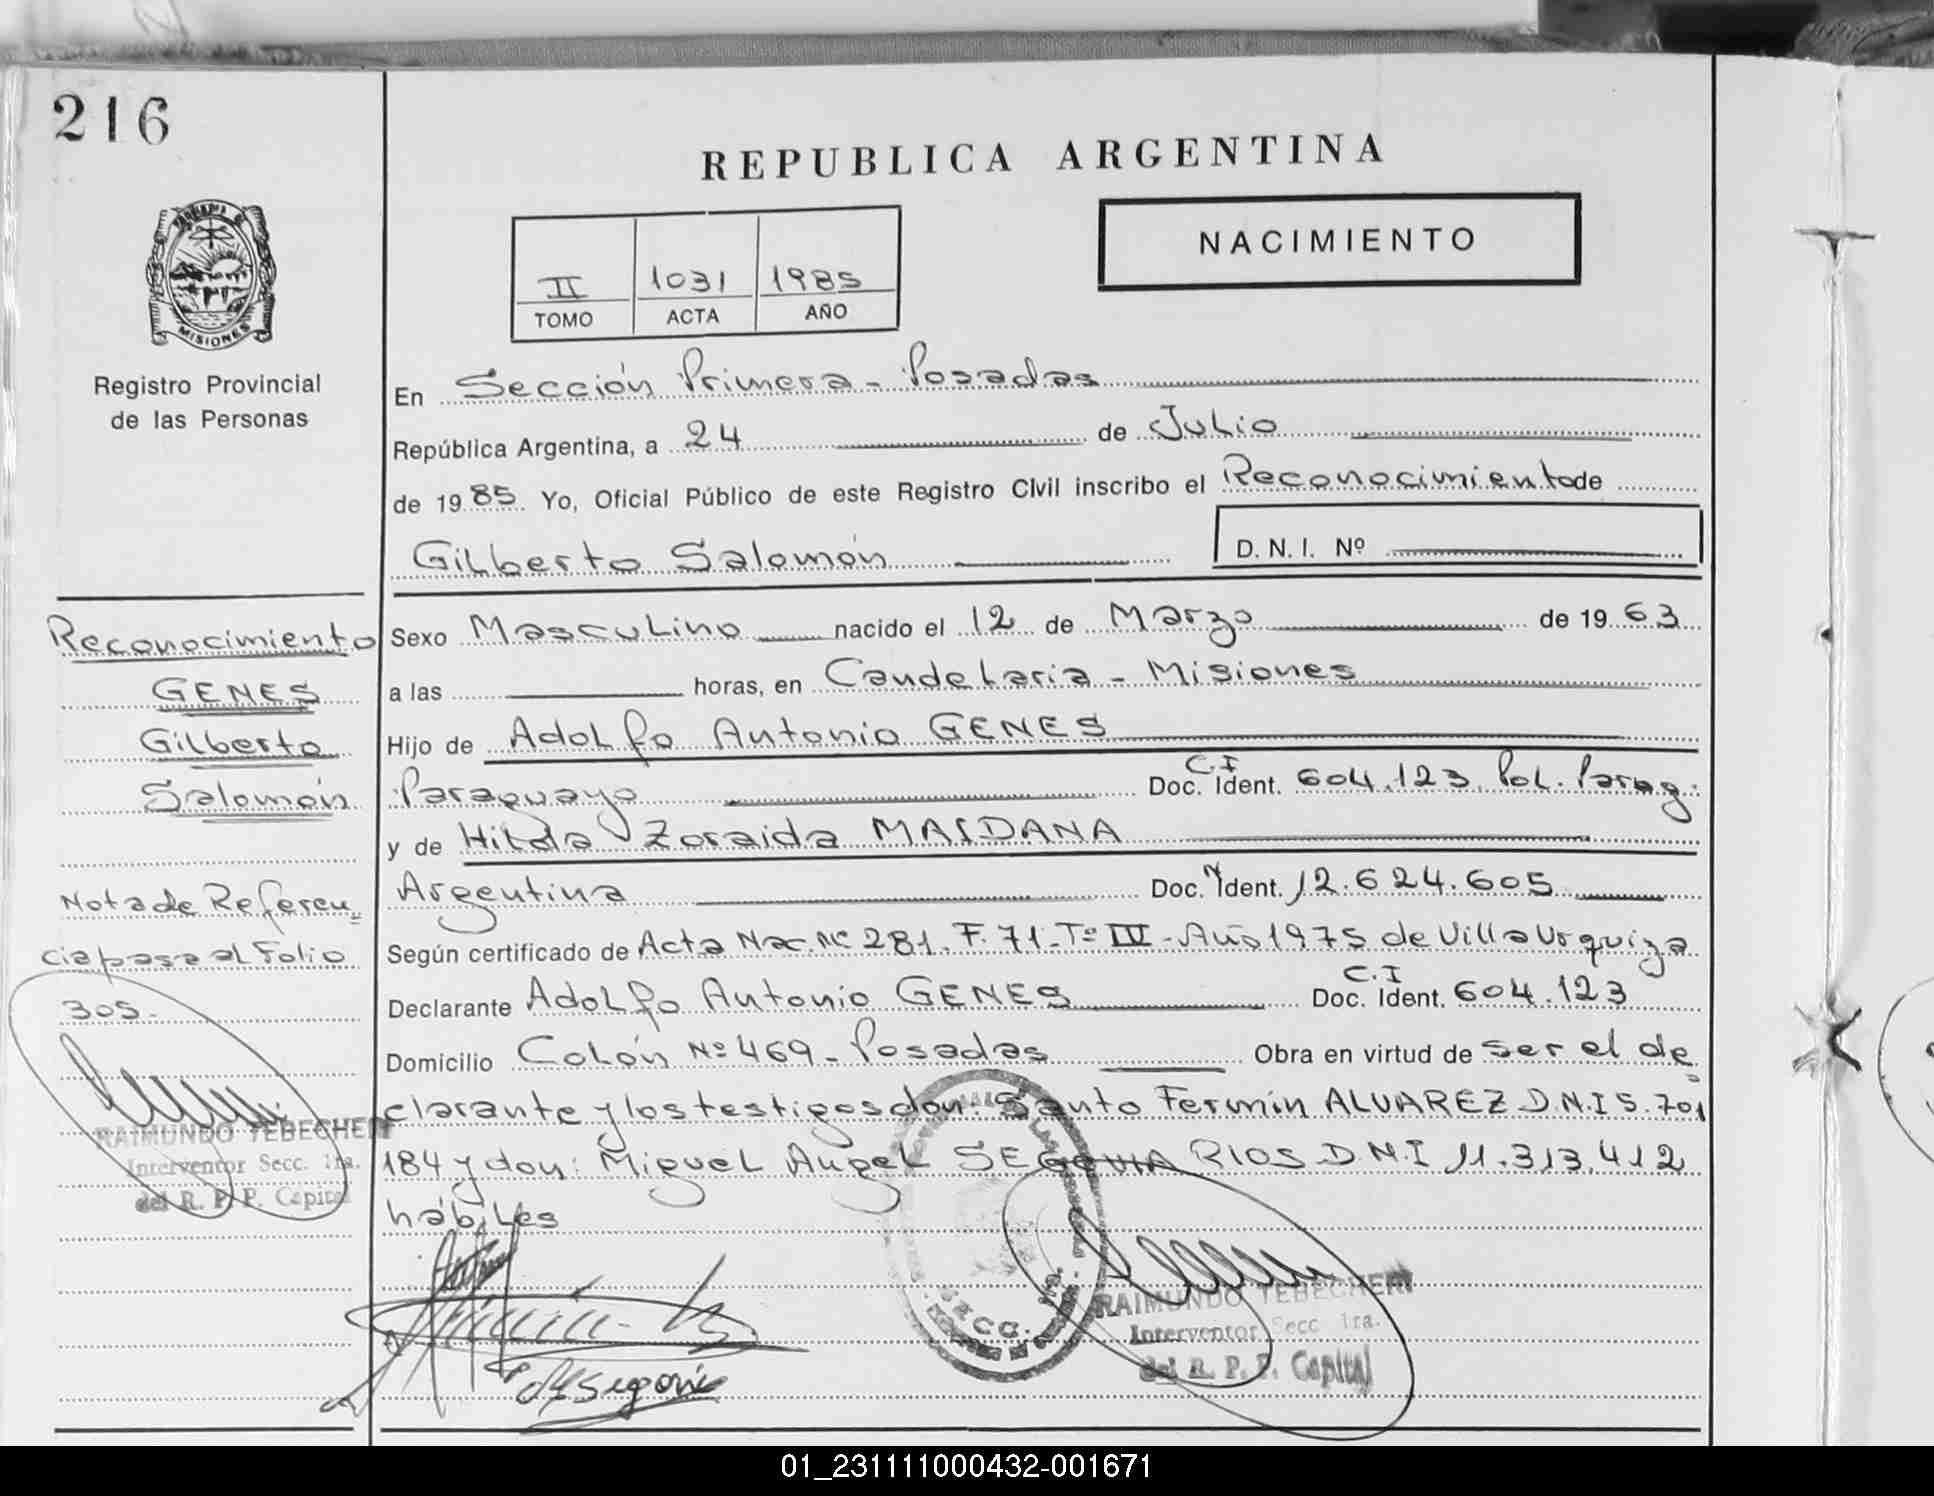 216
REPUBLICA ARGENTINA
NACIMIENTO
II 1031 1985
TOMO ACTA AÑO
MISIONES
Registro Provincial
de las Personas
En Sección Primera - Posadas
República Argentina, a 24 de Julio
de 1985. Yo, Oficial Público de este Registro Civil inscribo el Reconocimiento de
Gilberto Salomón
D. N. I. Nº
Reconocimiento
GENES
Gilberto
Salomón
Sexo Masculino nacido el 12 de Marzo de 1963
a las horas, en Candelaria - Misiones
Hijo de Adolfo Antonio GENES
Paraguayo Doc. C.I Ident. 604.123. Pol. Parag.
y de Hilda Zoraida MAIDANA
Argentina Doc. Ident. 12.624.605
Nota de Referen
cia pasa al Folio
305.
Según certificado de Acta Nac. Nº 281. F. 71. Tº III - Año 1975 de Villa Urquiza
Declarante Adolfo Antonio GENES Doc. C.I Ident. 604.123
Domicilio Colón Nº 469 - Posadas Obra en virtud de ser el de
clarante y los testigos don: Santo Fermín ALVAREZ D.N.I 5.701
184 y don: Miguel Angel SEGOVIA RIOS D.N.I 11.313.412
hábiles
RAIMUNDO TEBECHERI
Interventor Secc. 1ra.
del R. P. P. Capital
RAIMUNDO TEBECHERI
Interventor Secc 1ra.
del R. P. P. Capital
01_231111000432-001671